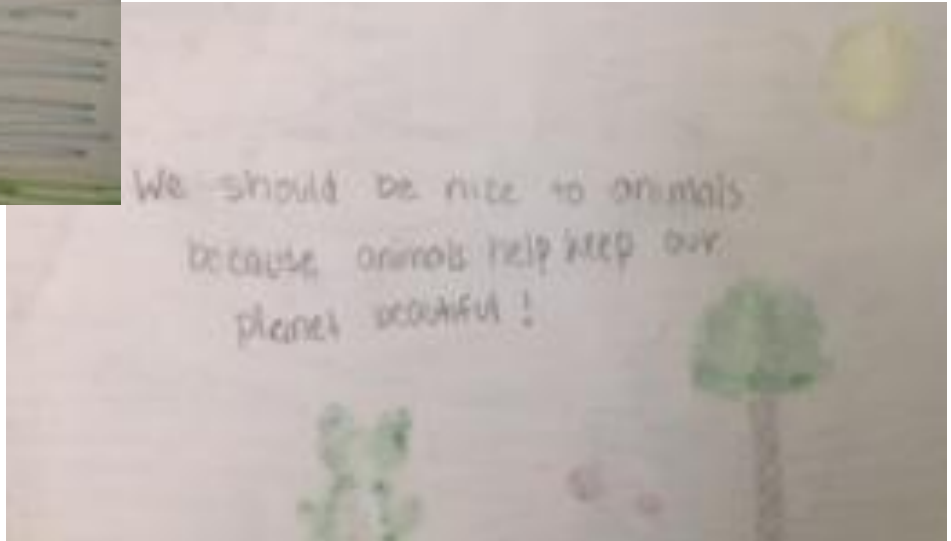 We should be nice to animals
because animals help keep our
planet beautiful!